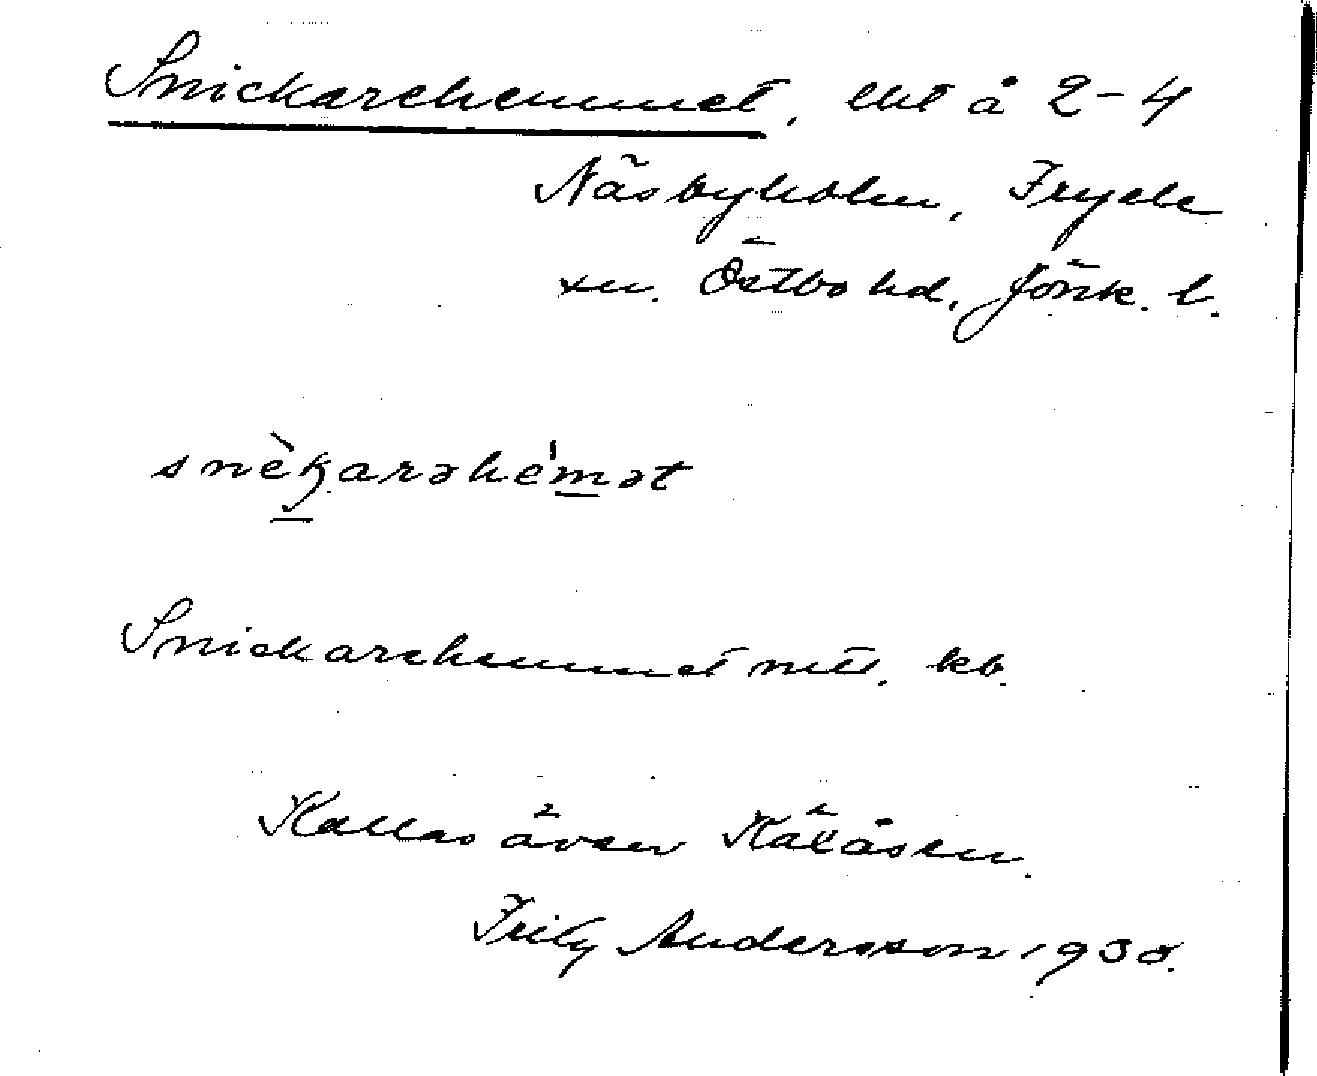 Snickarehemmet, lht å 2-4
Näsbyholm, Fryele
sn. Östbo hd, Jönk. l.
snèkarəhe̍mət
Snickarehemmet mtl. kb.
Kallas även Kälåsen.
Frity Andersson 1938.